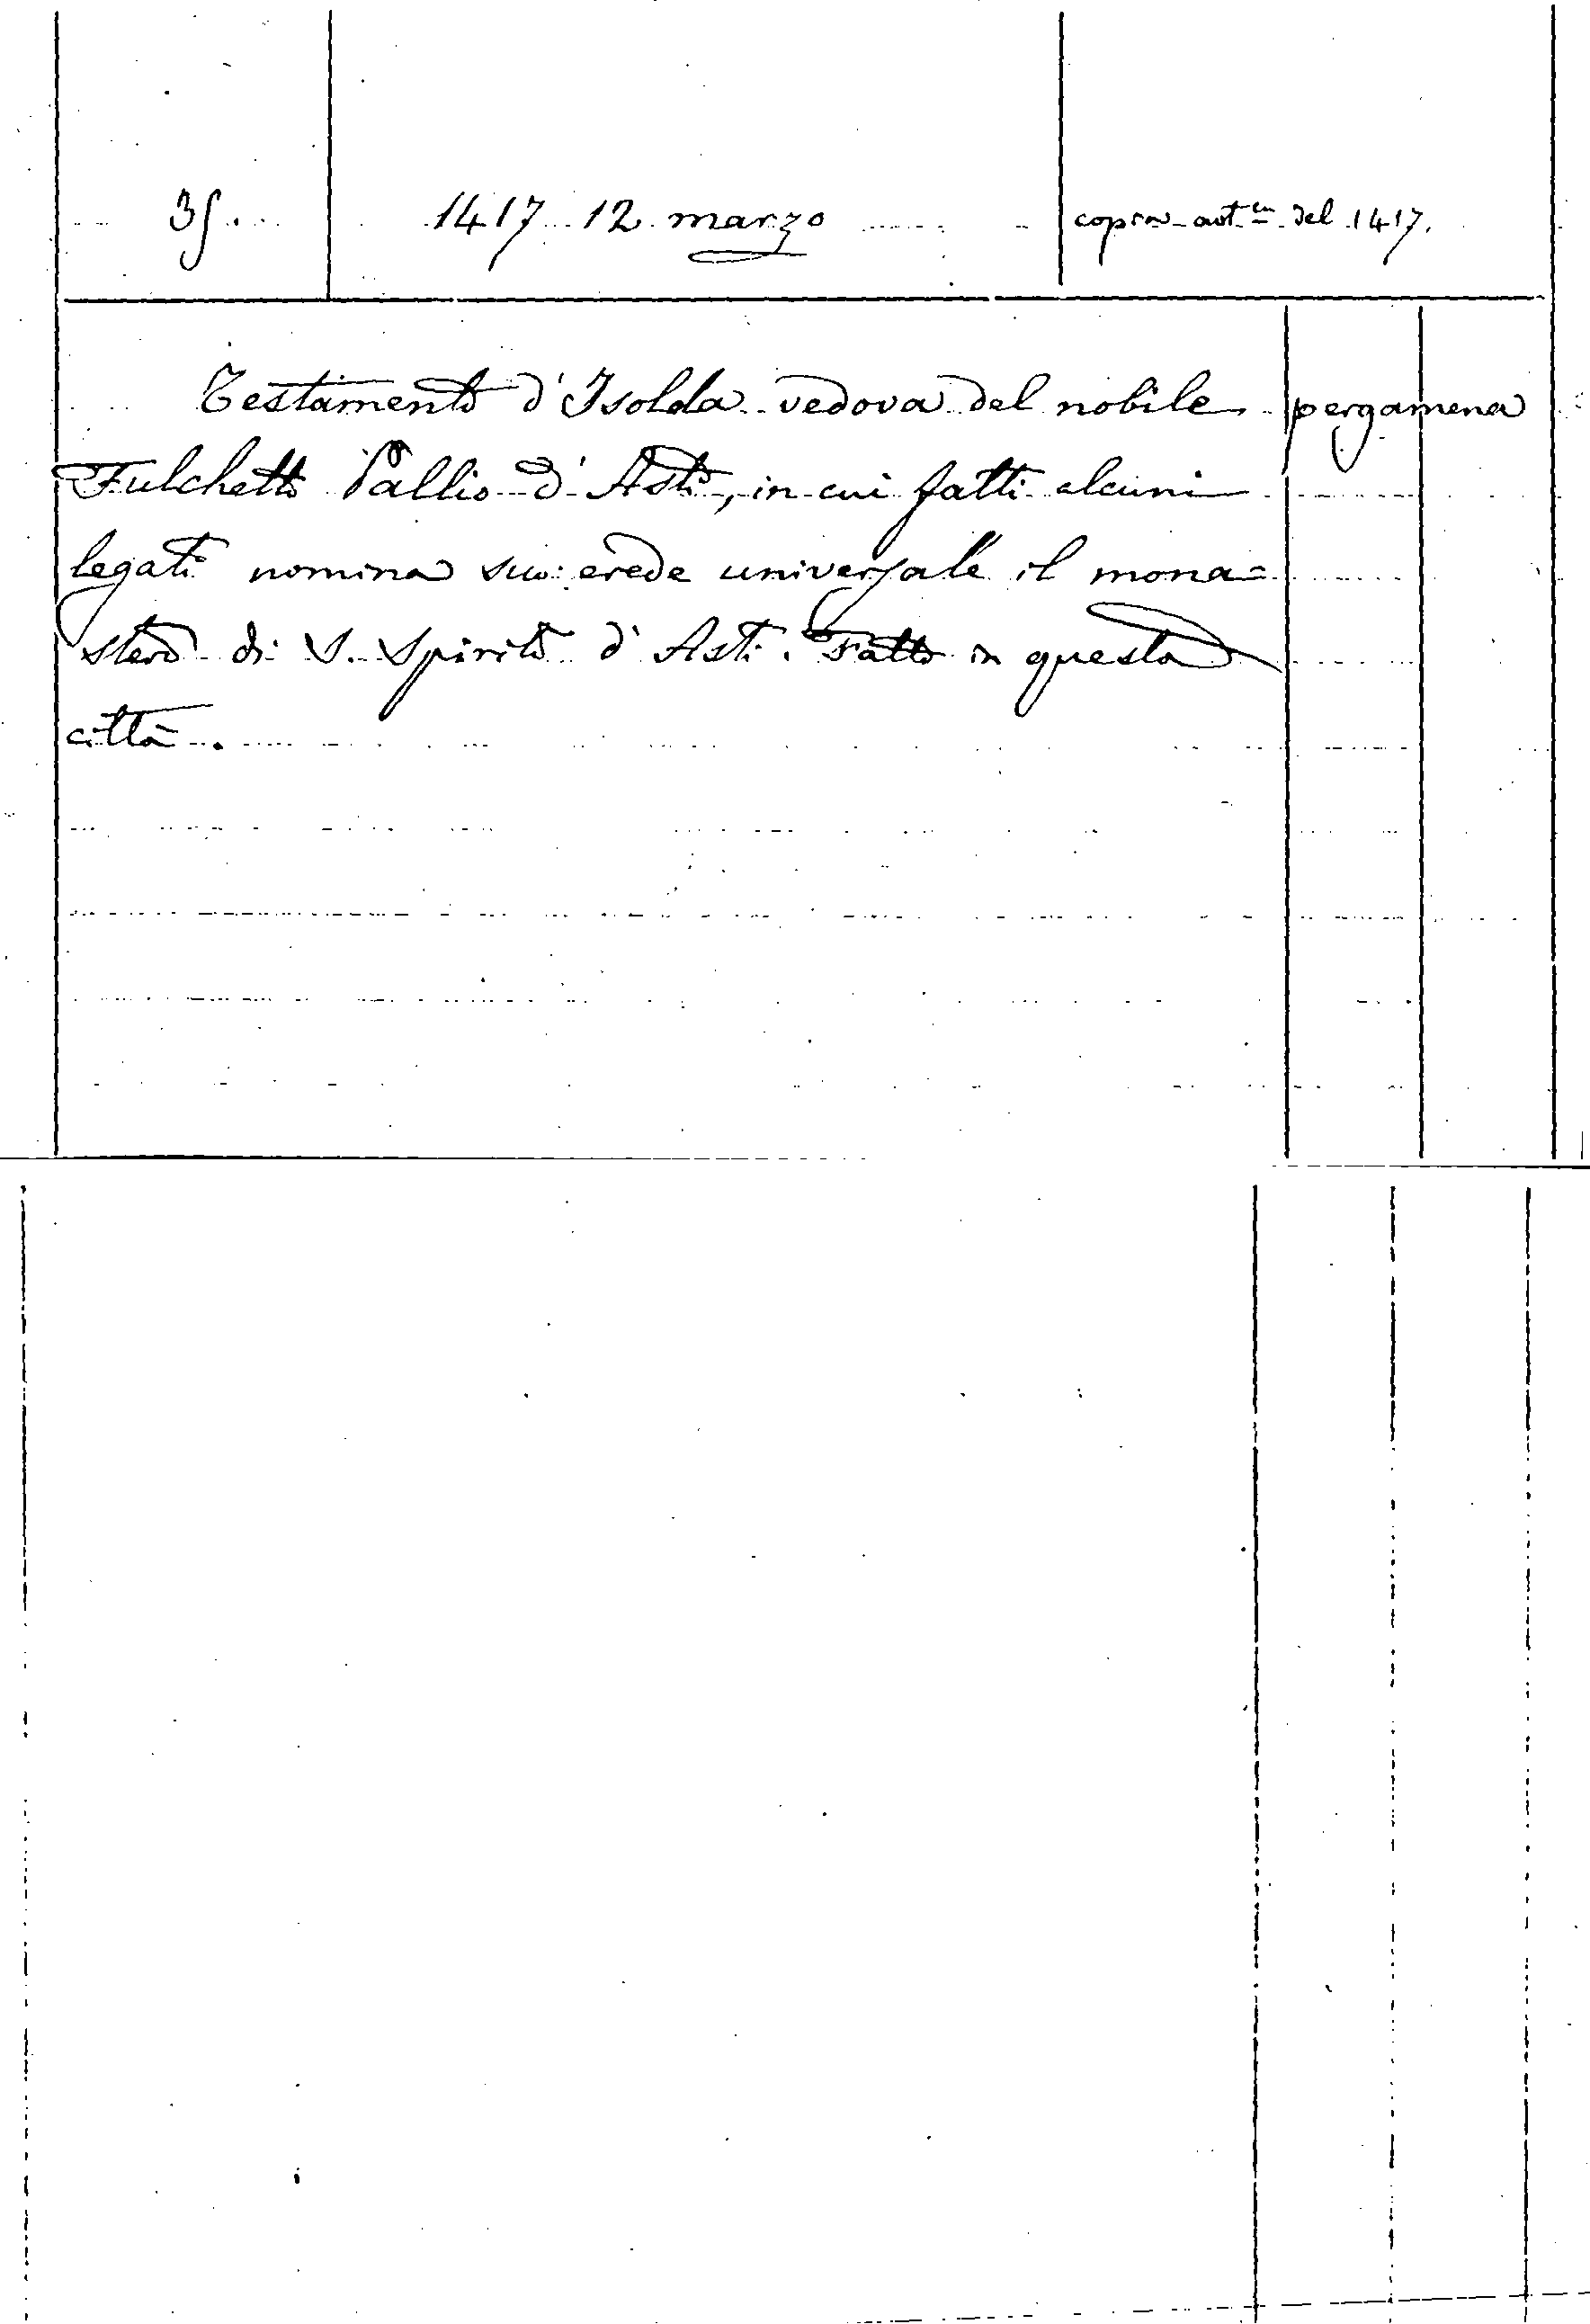 35. 1417 12 marzo copia aut.ca del 1417.
Testamento d'Isolda vedova del nobile pergamena
Fulchetto Pallio d'Asti, in cui fatti alcuni
legati nomina suo erede universale il mona=
stero di S. Spirito d'Asti. Fatto in questa
città.